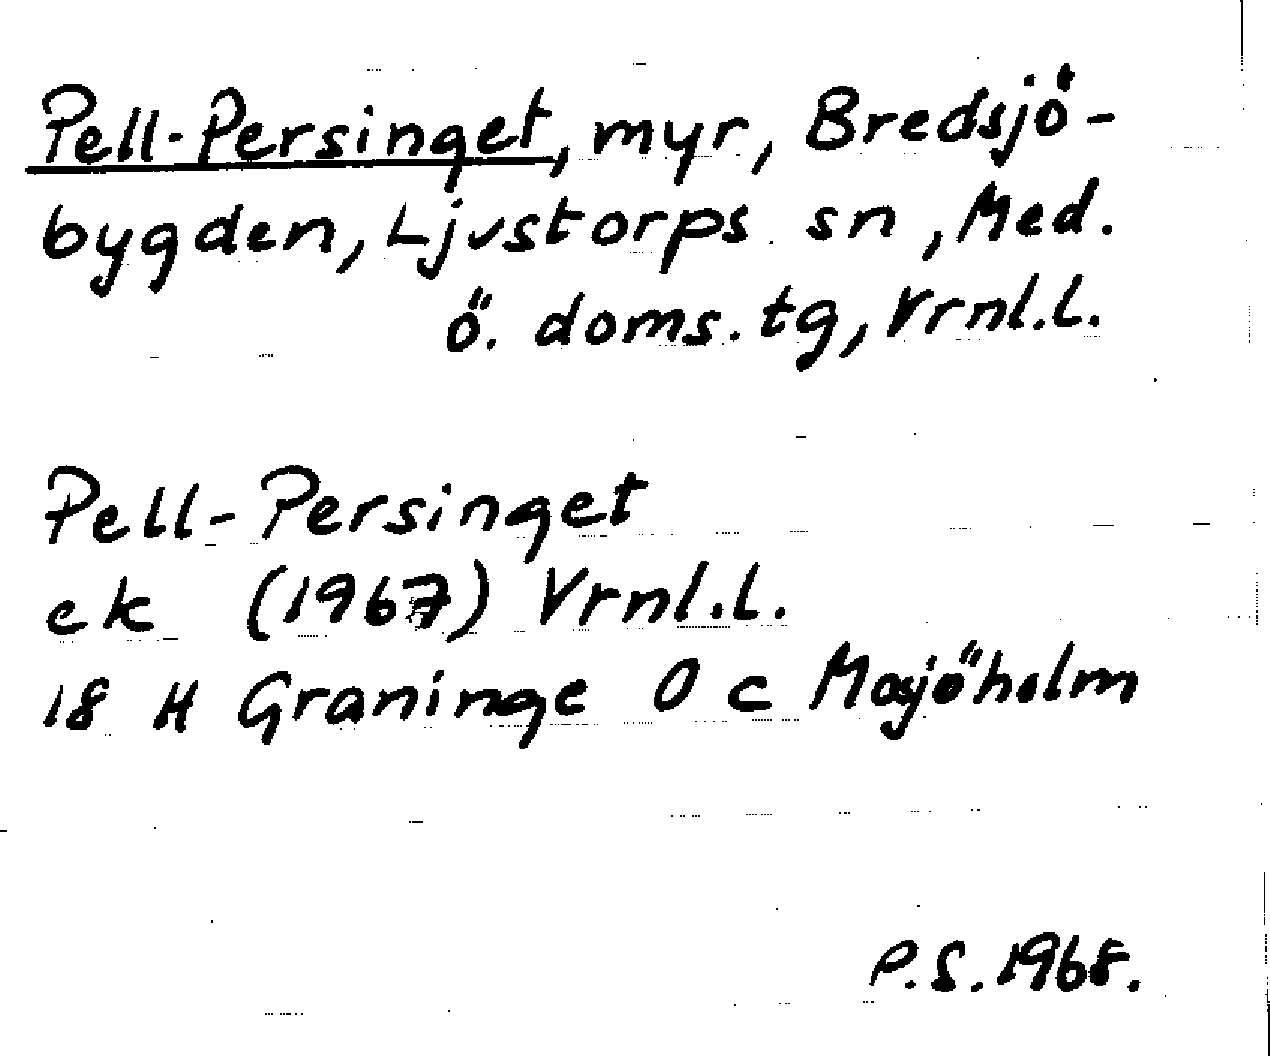 Pell-Persinget, myr, Bredsjö-
bygden, Ljustorps sn, Med.
ö. doms. tg, Vrnl.l.
Pell-Persinget
ek (1967) Vrnl.l.
18 H Graninge O c Masjöholm
P.S. 1968.